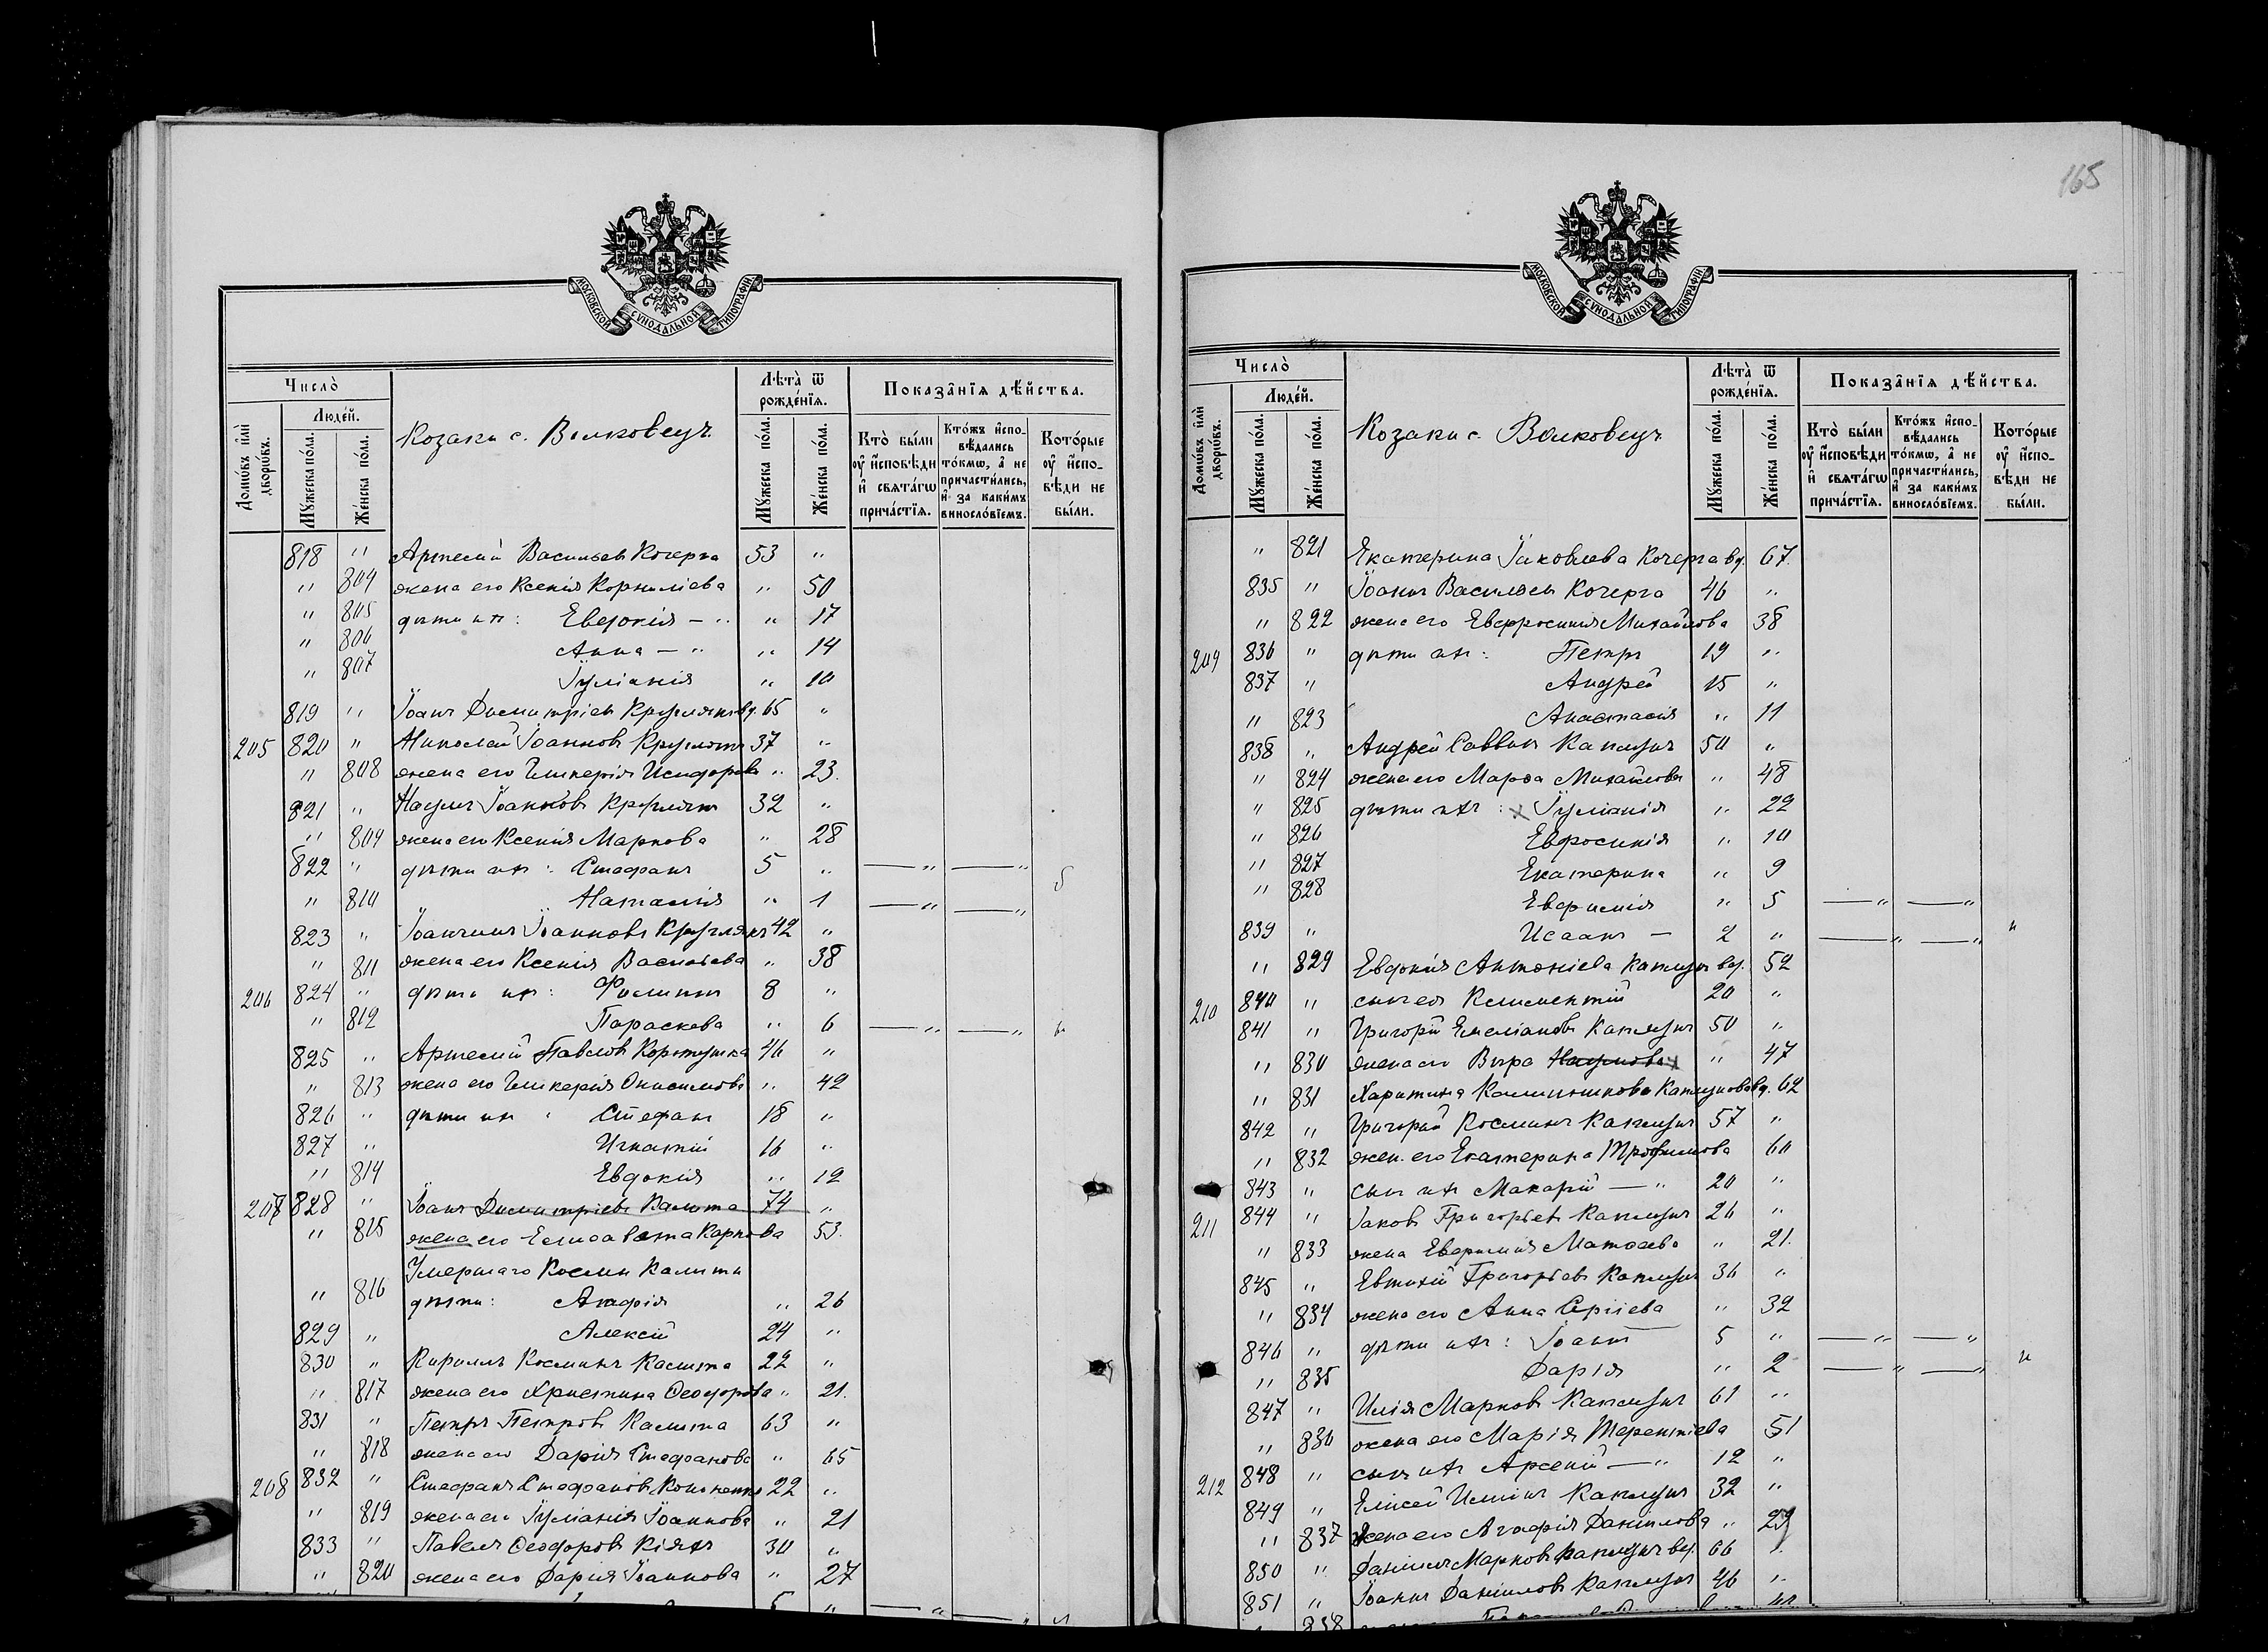 165
МОСКОВСКОЙ СѴНОДАЛЬНОЙ ТИПОГРАФІИ.
Число̀
Люде́й.
Домѡ́въ и҆лѝ дворѡ́въ.
Мꙋ́жеска по́ла.
Же́нска по́ла.
Козаки с. Волковецъ.
Лѣта̀ ѿ рожде́нїѧ.
Мꙋ́жеска по́ла.
Же́нска по́ла.
Показа̑нїѧ дѣ́йства.
Кто̀ бы́ли оу҆ и҆сповѣ́ди и҆ свѧта́гѡ прича́стїѧ.
Кто́жъ и҆спо-вѣ́дались то́кмѡ, а҆ не причасти́лись, и҆ за каки́мъ винослові́емъ.
Кото́рые оу҆ и҆спо-вѣ́ди не бы́ли.
818 " Артемій Васильевъ Кочерга 53 "
" 804 жена его Ксенія Корниліева " 50
" 805 дѣти ихъ: Евдокія — " " 17
" 806 Анна — " " 14
" 807 Іуліанія " 10
819 " Іоанъ Димитріевъ Круглякъ вд. 65 "
205 820 " Николай Іоанновъ Круглякъ 37 "
" 808 жена его Гликерія Исидорова " 23.
821 " Наумъ Іоанновъ Круглякъ 32 "
" 809 жена его Ксенія Маркова " 28
822 " дѣти ихъ: Стефанъ 5 " — " — "
" 810 Наталія " 1 — " — "
823 " Іоакимъ Іоанновъ Круглякъ 42 "
" 811 жена его Ксенія Васильева " 38
206 824 " дѣти ихъ: Филиппъ 8 "
" 812 Параскева " 6 — " — " "
825 " Артемій Павловъ 46 "
" 813 жена его Гликерія Онисимова " 42
826 " дѣти ихъ " Стефанъ 18 "
827 " Игнатій 16 "
" 814 Евдокія " 12
207 828 " Іоанъ Димитріевъ Калита 74 "
" 815 жена его Елисавета Карпова 53.
Умершаго Космы Калиты
" 816 дѣти: Агафія " 26
829 " Алексій 24 "
830 " Кириллъ Косминъ Калита 22 "
" 817 жена его Христина Ѳеодорова " 21.
831 " Петръ Петровъ Калита 63 "
" 818 жена его Дарія Стефанова " 65
208 832 " Стефанъ Стефановъ Кононенко 22 "
" 819 жена его Іуліанія Іоаннова " 21
833 " Павелъ Ѳеодоровъ Кіяхъ 30 "
" 820 жена его Дарія Іоаннова " 27
Число̀
Люде́й.
Домѡ́въ и҆лѝ дворѡ́въ.
Мꙋ́жеска по́ла.
Же́нска по́ла.
Козаки с. Волковецъ
Лѣта̀ ѿ рожде́нїѧ.
Мꙋ́жеска по́ла.
Же́нска по́ла.
Показа̑нїѧ дѣ́йства.
Кто̀ бы́ли оу҆ и҆сповѣ́ди и҆ свѧта́гѡ прича́стїѧ.
Кто́жъ и҆спо-вѣ́дались то́кмѡ, а҆ не причасти́лись, и҆ за каки́мъ винослові́емъ.
Кото́рые оу҆ и҆спо-вѣ́ди не бы́ли.
МОСКОВСКОЙ СѴНОДАЛЬНОЙ ТИПОГРАФІИ.
" 821 Екатерина Іаковлева Кочерга вд. 67.
835 " Іоанъ Васильевъ Кочерга 46 "
" 822 жена его Евфросинія Михайлова 38
209 836 " дѣти ихъ: Петръ 19 "
837 " Андрей 15 "
" 823 Анастасія " 11
838 " Андрей Саввинъ Каплунъ 50 "
" 824 жена его Марѳа Михайлова " 48
" 825 дѣти ихъ: х Іуліанія " 22
" 826 Евфросинія " 10
" 827 Екатерина " 9
" 828 Евфимія " 5 — " — "
839 " Исаакъ — 2 " — " — " "
" 829 Евдокія Антоніева Каплунъ вд. 52
210 840 " сынъ ея Климентій 20 "
841 " Григорій Емеліановъ Каплунъ 50 "
" 830 жена его Вѣра Наумова " 47
" 831 Харитина Калинникова Каплунова вд. 62
842 " Григорій Косминъ Каплунъ 57 "
" 832 жен. его Екатерина Трофимова 60
843 " сынъ ихъ Макарій — " 20 "
211 844 " Іаковъ Григорьевъ Каплунъ 26 "
" 833 жена Евфимія Матѳеева " 21.
845 " Евтихій Григорьевъ Каплунъ 36 "
" 834 жена его Анна Сергіева " 32
846 " дѣти ихъ: Іоанъ 5 " — " — "
" 835 Дарія " 2 — " — " "
847 " Илія Марковъ Каплунъ 61 "
" 836 жена его Марія Терентіева 51
212 848 " сынъ ихъ Арсеній — " 12 "
849 " Елисей Иліинъ Каплунъ 32 "
" 837 жена его Агафія Даніилова " 29
850 " Даніилъ Марковъ Каплунъ вд. 66 "
851 " Іоанъ Даніиловъ Каплунъ 46 "
838